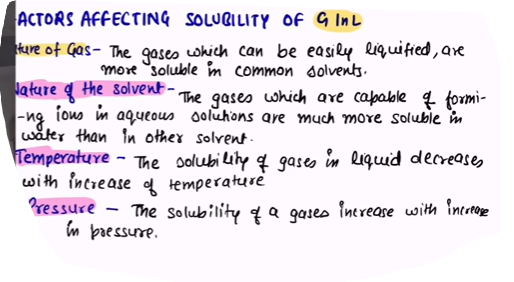 ACTORS AFFECTING SOLUBILITY OF G In L
ture of Gas - The gases which can be easily liquified, are
more soluble in common solvents.
Nature of the solvent - The gases which are capable of formi-
-ng ions in aqueous solutions are much more soluble in
water than in other solvent.
Temperature - The solubility of gases in liquid decreases
with increase of temperature
Pressure - The solubility of a gases increase with increase
in pressure.